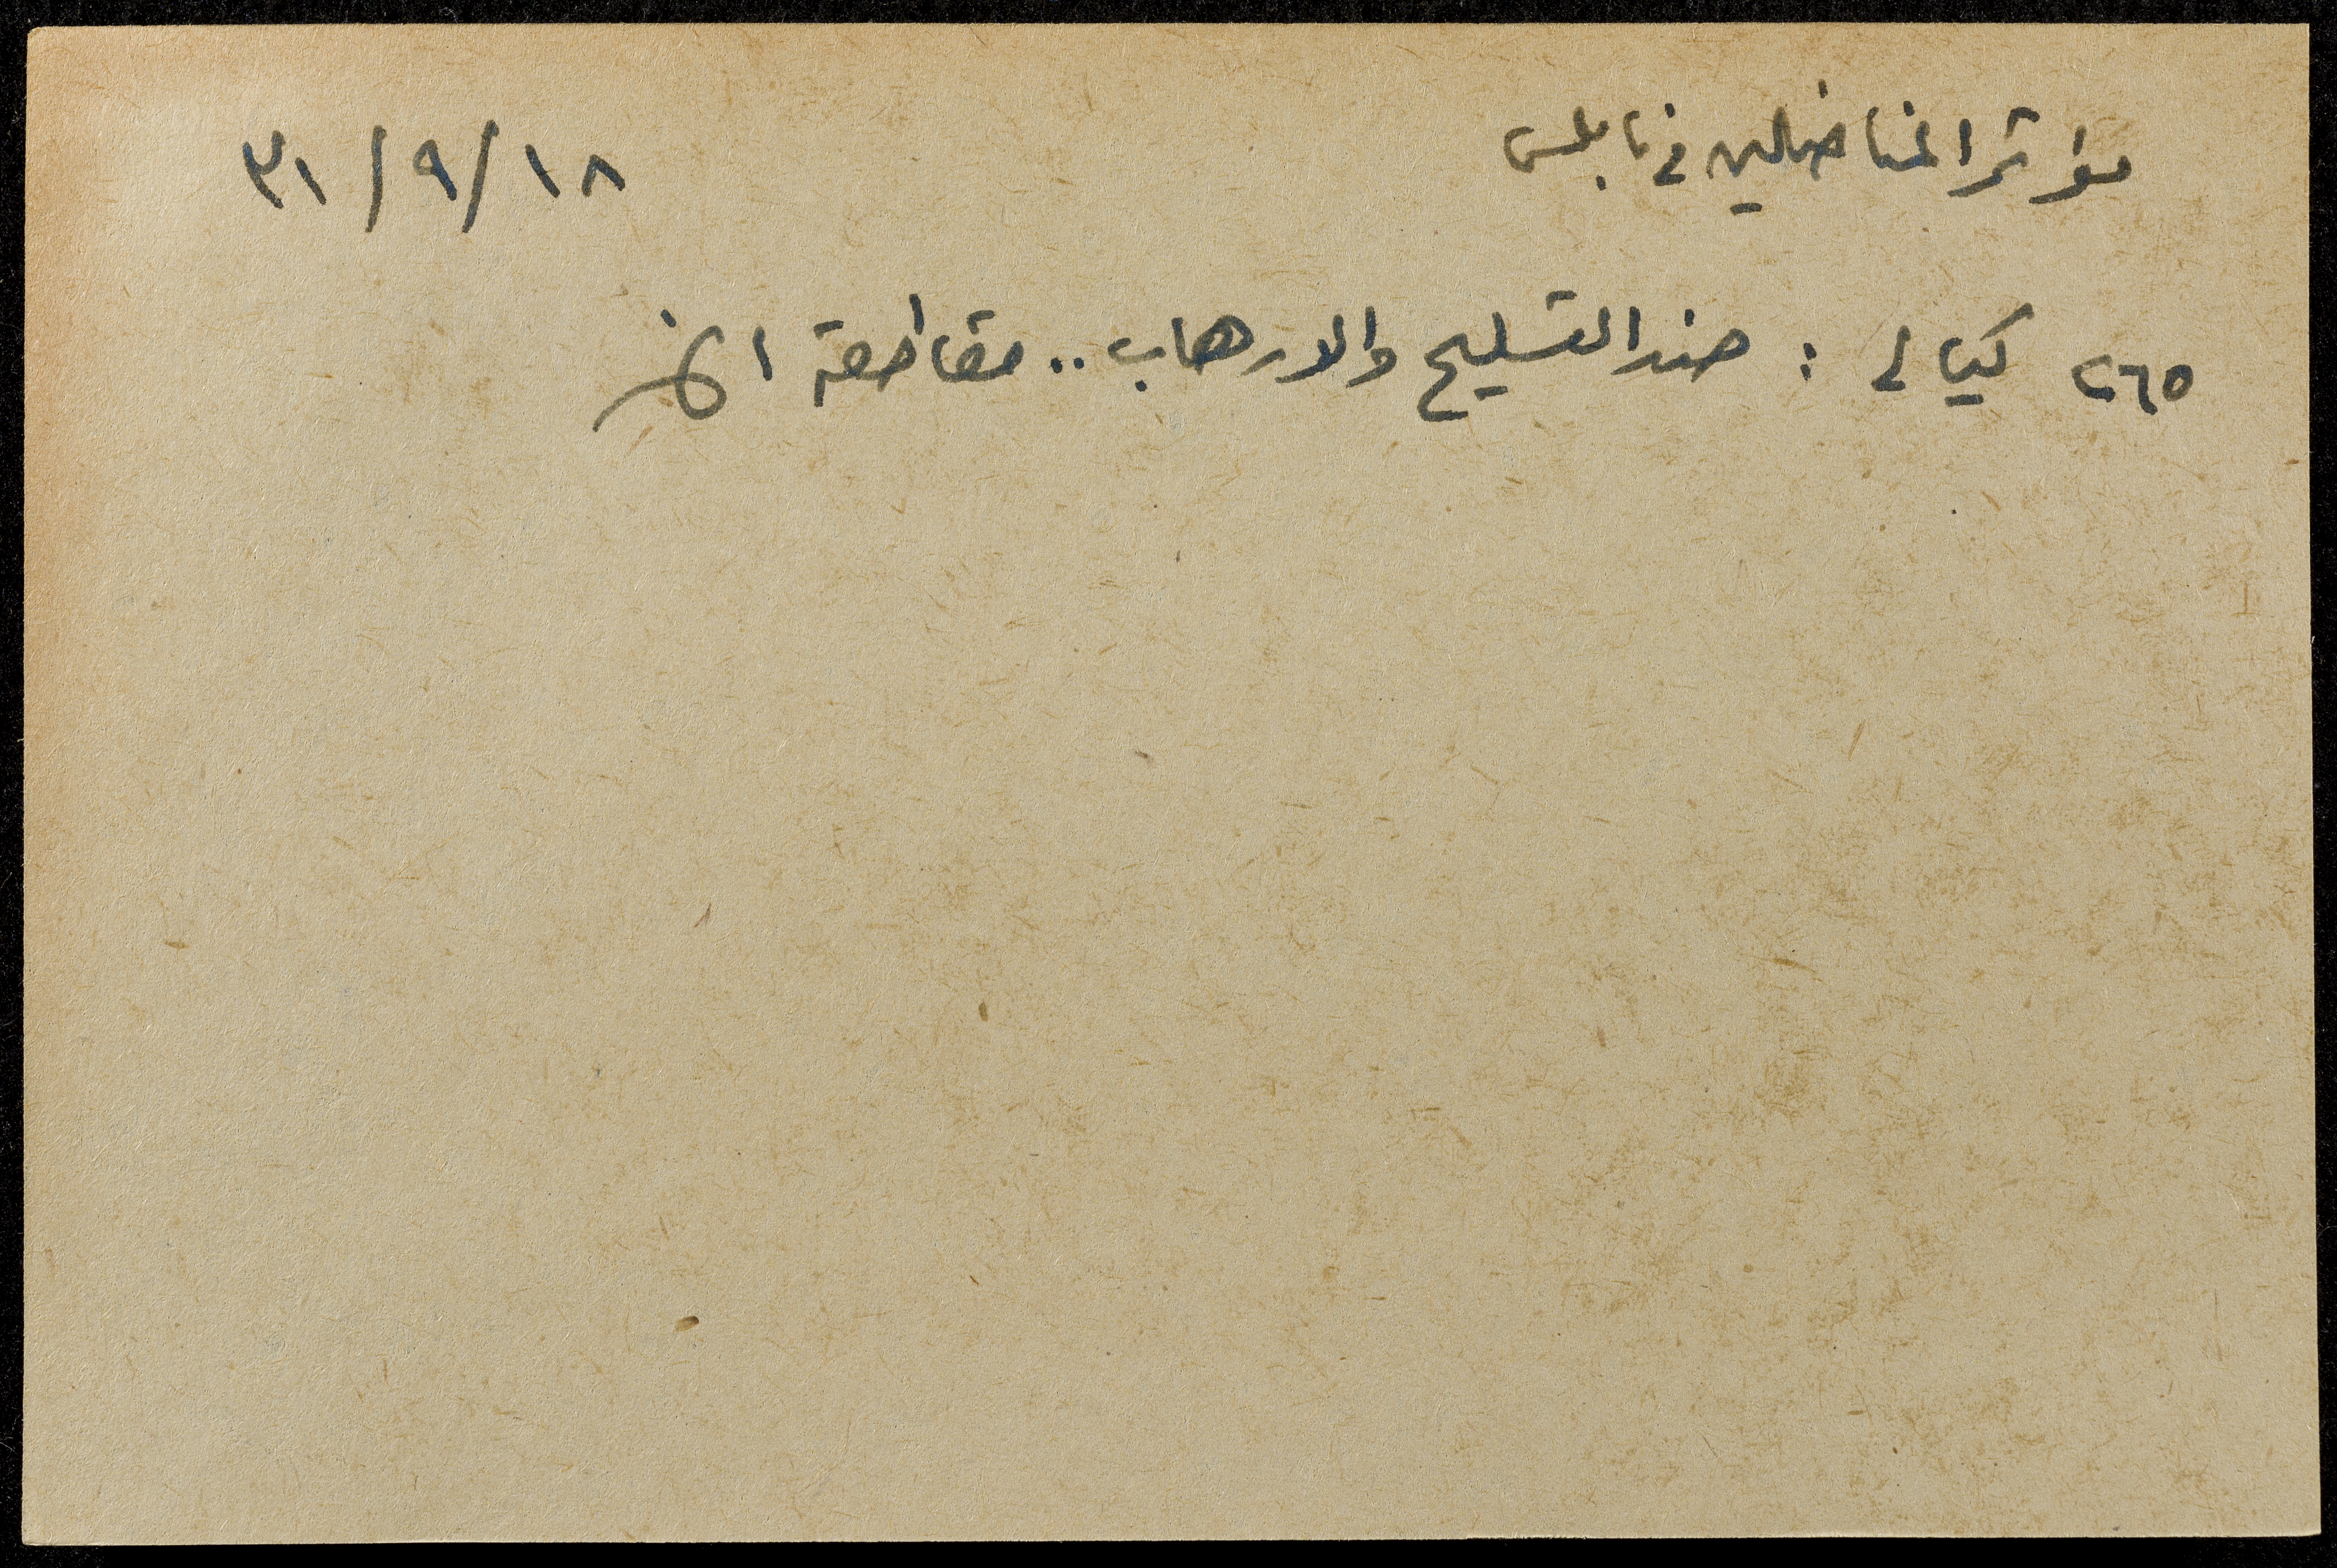 مؤتمر المناضلين في نابلس ١٨/٩/٣١
٢٦٥ كيالي : ضد التسليح والارهاب .. مقاطعة